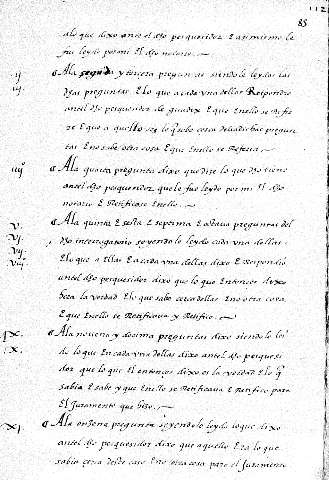 112
85
alo que dixo ante el dho perquesidor E asimismo le
fue leydo por mi El dho notario
ij
iij
A la segunda y tercera preguntas siendole leydas las
dhas preguntas Elo que a cada vna dellas Respondio
antel dho perquesidor de guadix E que Enello se Refie
re E que a quello es lo q sabe cerca de las dichas pregun
tas E no sabe otra cosa E que Enello se Referia
iiijº
A la quarta pregunta dixo que dize lo que dho tiene
antel dho perquesidor que le fue leydo por mi El dho
notario E Retificase Enello
v.
vj.
vij.
viij.
A la quinta E sesta E septima E octaua preguntas del
dho interrogatorio seyendole leydo cada vna dellas
Elo que a Ellas E a cada vna dellas dixo E rrespondio
antel dho perquesidor dixo que lo que Entonces dixo
hera la verdad Elo que sabe cerca dellas E no otra cosa
E que Enello se Retificaua y Retifico
jX.
X.
A la nouena y decima preguntas dixo siendole ley
do lo que En cada vna dellas dixo antel dho perquesi
dor que lo que El entonces dixo es la verdad E lo q
sabia E sabe y que Enello se Retificaua E Retifico para
El Juramento que hizo
Xj.
A la onzena pregunta seyendole leydo lo que dixo
antel dho perquesidor dixo que aquello Era lo que
sabia cerca deste caso E no otra cosa para el Juramento